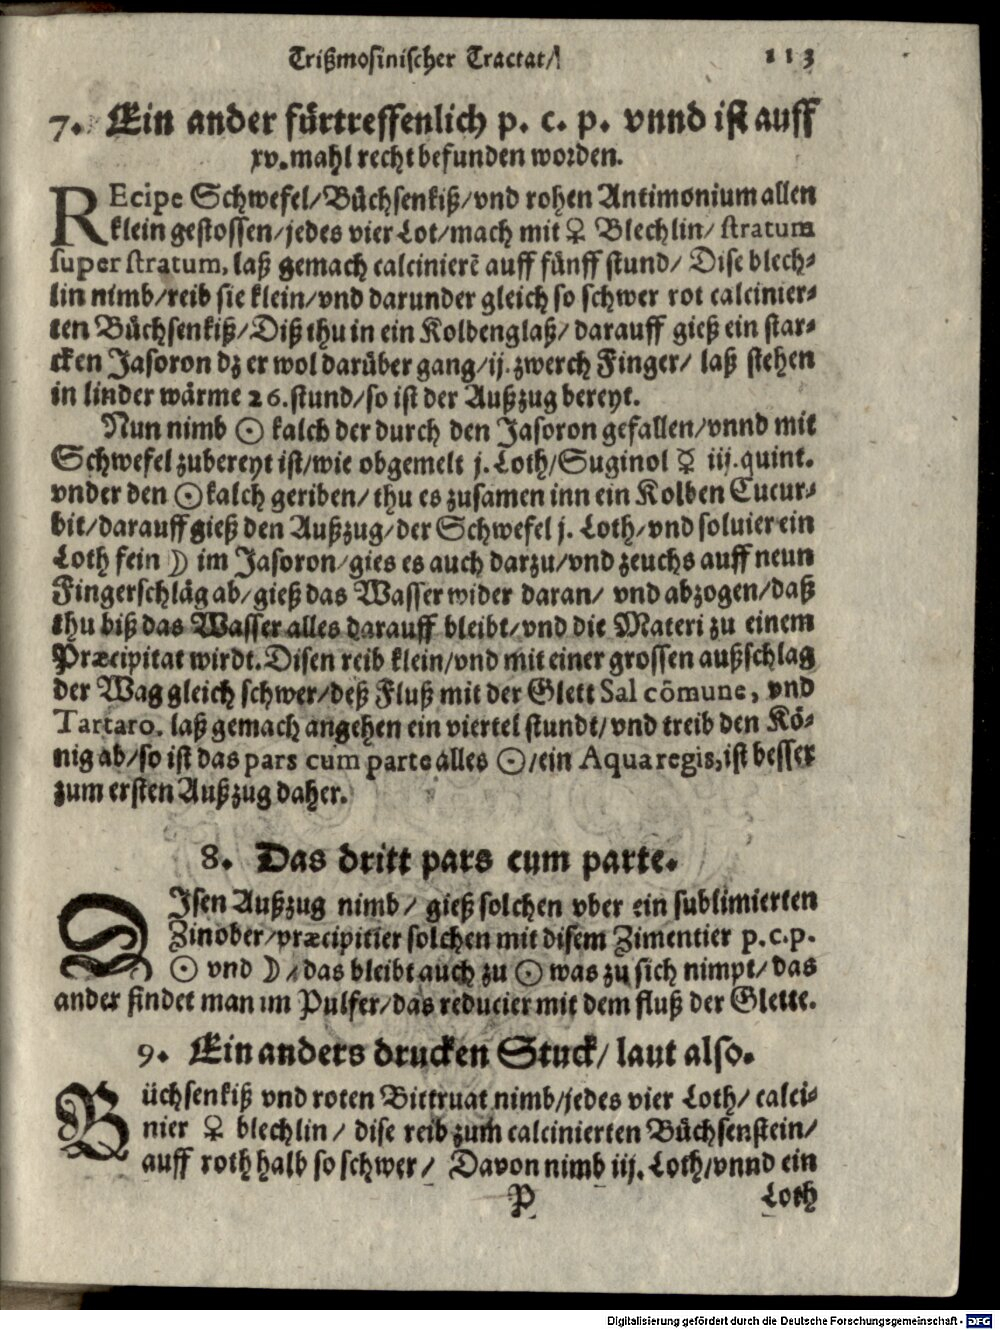 Trißmosinischer Tractat/ 113
7. Ein ander fürtreffenlich p. c. p. vnnd ist auff
xv. mahl recht befunden worden.
REcipe Schwefel/Büchsenkiß/vnd rohen Antimonium allen
klein gestossen/jedes vier Lot/mach mit ♀ Blechlin/ stratum
super stratum, laß gemach calcinierē auff fünff stund/ Dise blech-
lin nimb/reib sie klein/vnd darunder gleich so schwer rot calcinier-
ten Büchsenkiß/Diß thu in ein Kolbenglaß/ darauff gieß ein star-
cken Jasoron dz er wol darüber gang/ij. zwerch Finger/ laß stehen
in linder wärme 26. stund/so ist der Außzug bereyt.
Nun nimb ☉ kalch der durch den Jasoron gefallen/vnnd mit
Schwefel zubereyt ist/wie obgemelt j. Loth/Suginol ☿ iij. quint.
vnder den ☉ kalch geriben/thu es zusamen inn ein Kolben Cucur-
bit/darauff gieß den Außzug/der Schwefel j. Loth/vnd soluier ein
Loth fein ☽ im Jasoron/gies es auch darzu/vnd zeuchs auff neun
Fingerschläg ab/gieß das Wasser wider daran/ vnd abzogen/daß
thu biß das Wasser alles darauff bleibt/vnd die Materi zu einem
Præcipitat wirdt. Disen reib klein/vnd mit einer grossen außschlag
der Wag gleich schwer/deß Fluß mit der Glett Sal cōmune, vnd
Tartaro. laß gemach angehen ein viertel stundt/vnd treib den Kö-
nig ab/so ist das pars cum parte alles ☉/ein Aqua regis, ist besser
zum ersten Außzug daher.
8. Das dritt pars cum parte.
DIsen Außzug nimb/ gieß solchen vber ein sublimierten
Zinober/præcipitier solchen mit disem Zimentier p.c.p.
☉ vnd ☽/das bleibt auch zu ☉ was zu sich nimpt/das
ander findet man im Pulfer/das reducier mit dem fluß der Glette.
9. Ein anders drucken Stuck/ laut also.
Büchsenkiß vnd roten Bittruat nimb/jedes vier Loth/ calci-
nier ♀ blechlin/ dise reib zum calcinierten Büchsenstein/
auff roth halb so schwer/ Davon nimb iij. Loth/vnnd ein
P Loth
Digitalisierung gefördert durch die Deutsche Forschungsgemeinschaft - DFG